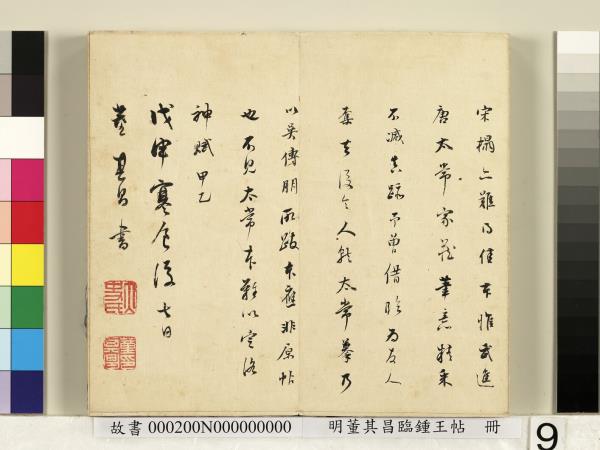 宋搨亦難得佳本惟武進
唐太常家藏筆意精采
不減真蹟予曾借臨為友人
奪去後
人
太常摹乃
以吳傅朋所跋本應非原帖
也不見太常本難以定洛
神賦甲乙
戊申寒食後七日
董其昌書
故書 000200N000000000
明董其昌臨鍾王帖 冊
9